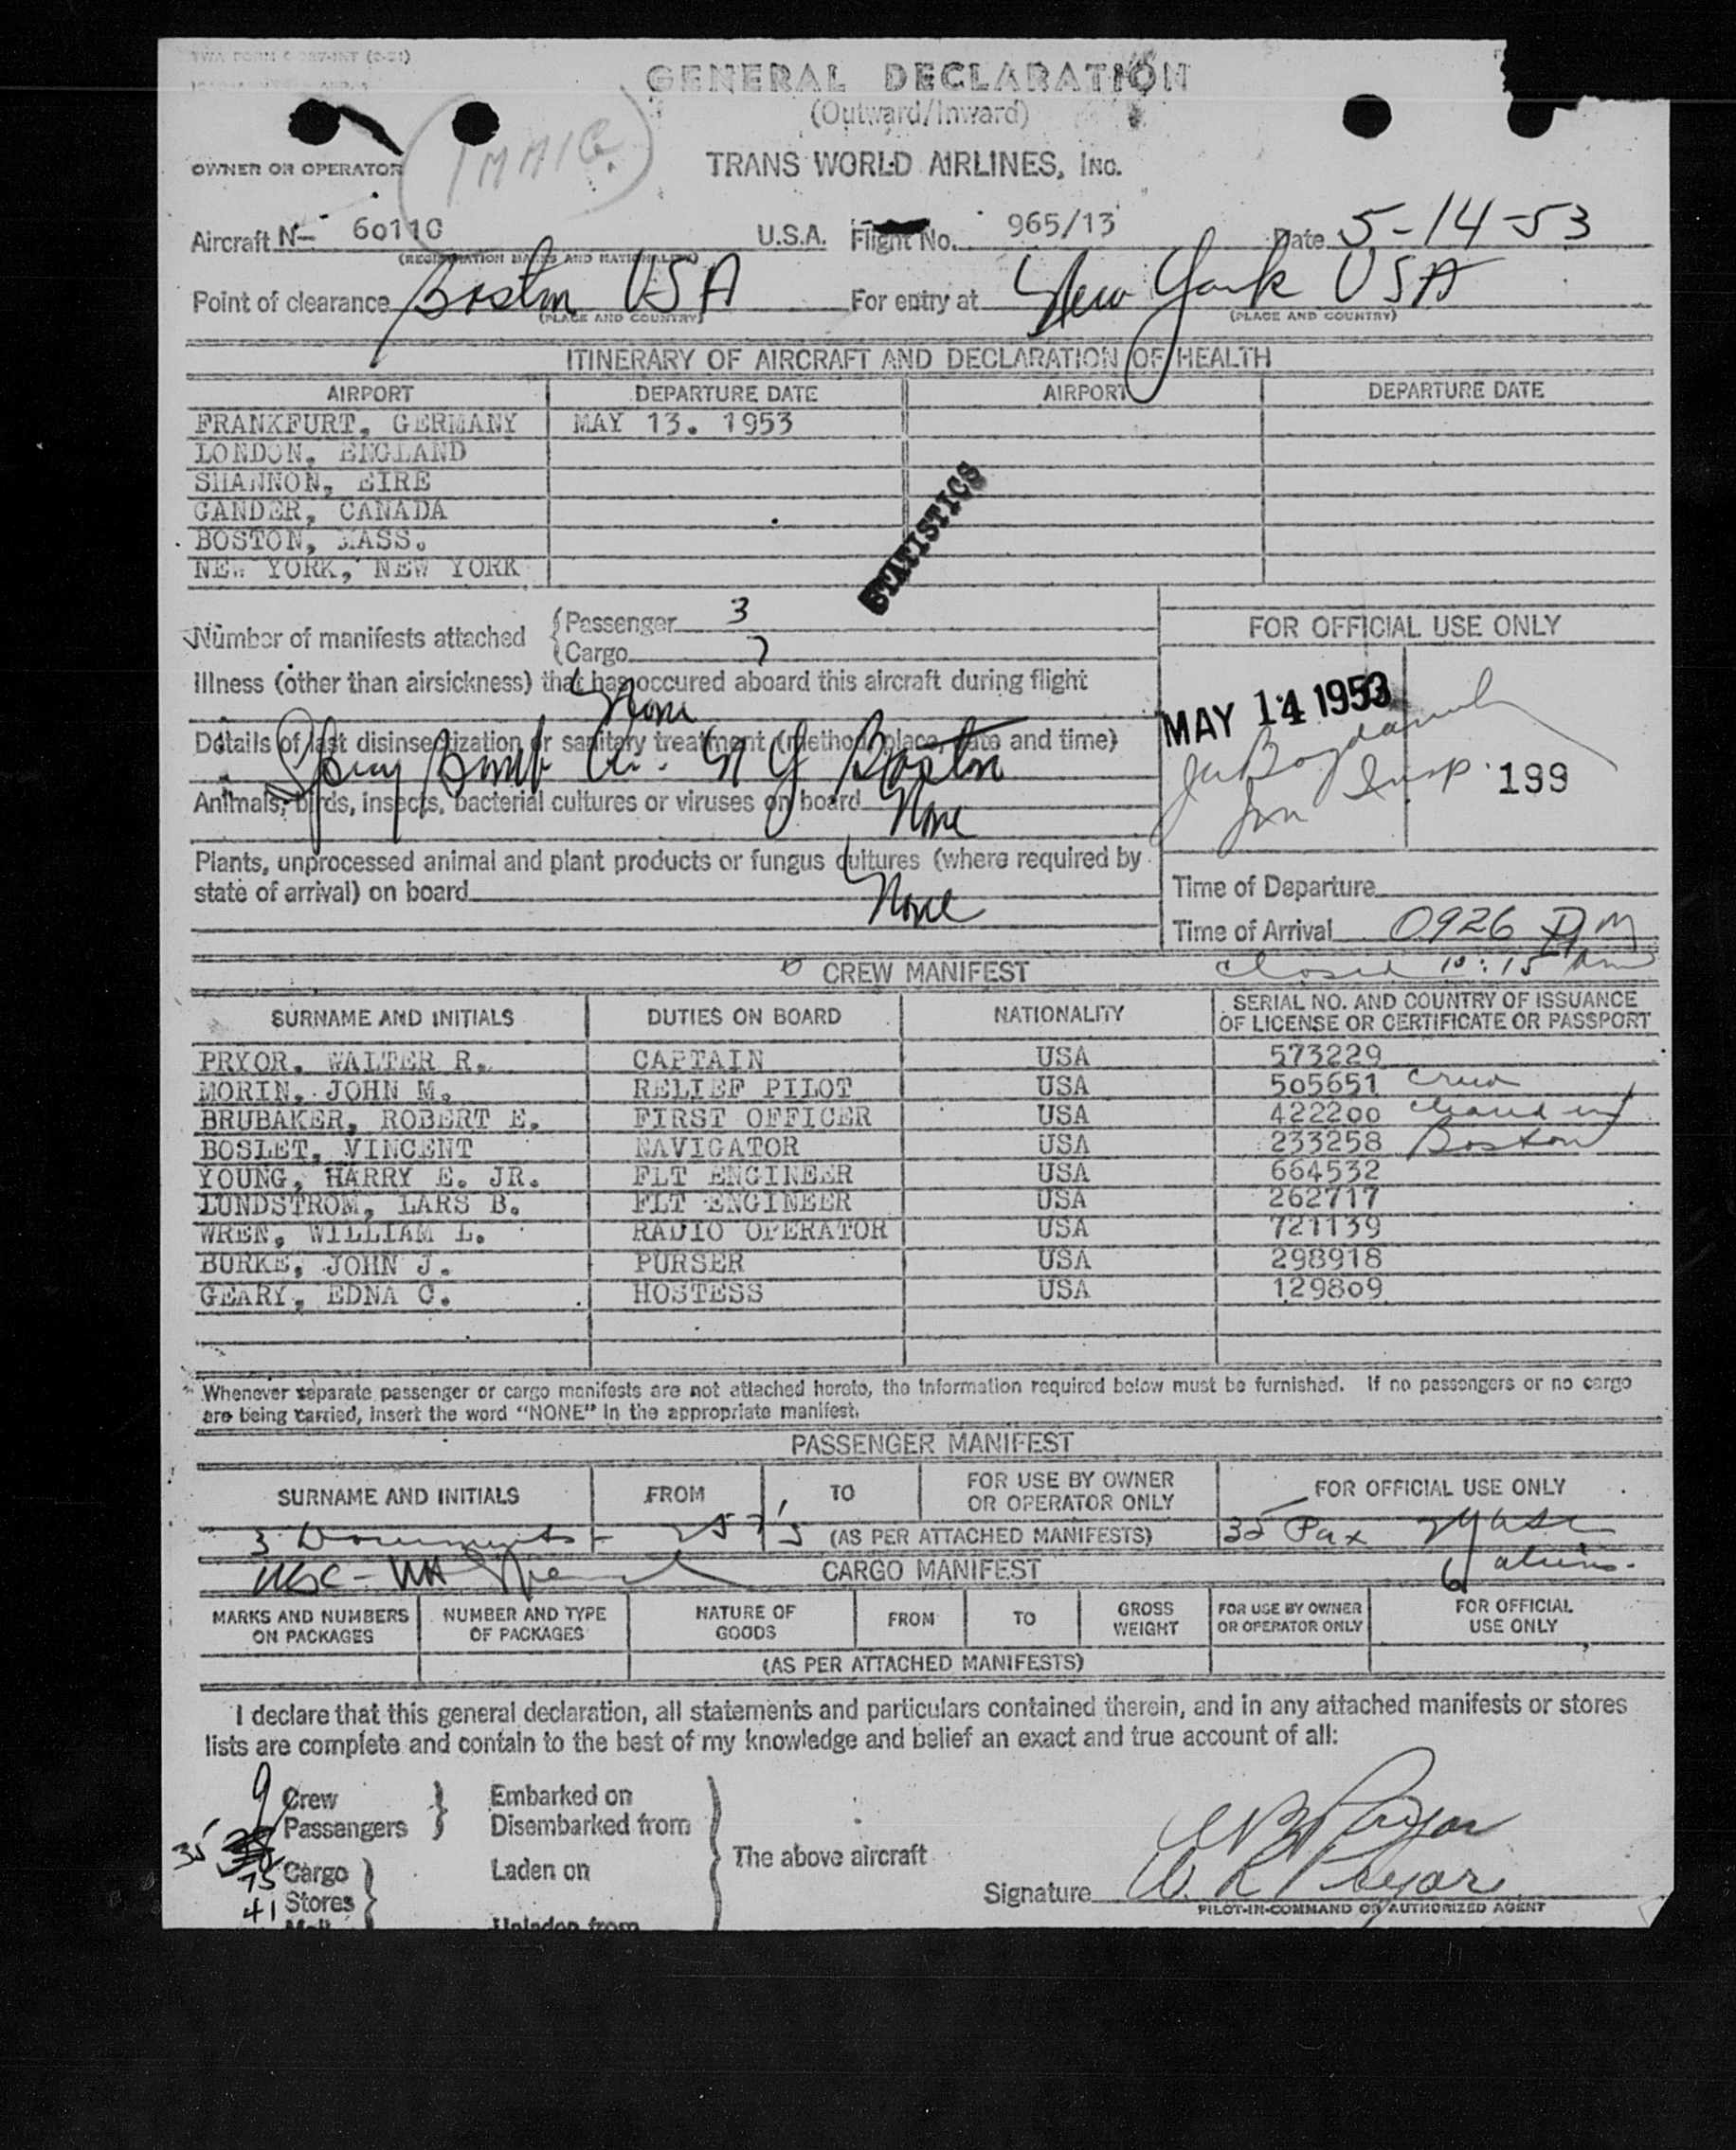 GENERAL DECLARATION
(Outward/Inward)
(IMMIG.)
OWNER OR OPERATOR TRANS WORLD AIRLINES, INC.
Aircraft N- 6011C U.S.A. Flight No. 965/13 Date 5-14-53
(REGISTRATION MARKS AND NATIONALITY)
Point of clearance Boston USA For entry at New York USA
(PLACE AND COUNTRY) (PLACE AND COUNTRY)
ITINERARY OF AIRCRAFT AND DECLARATION OF HEALTH
AIRPORT DEPARTURE DATE AIRPORT DEPARTURE DATE
FRANKFURT, GERMANY MAY 13. 1953
LONDON, ENGLAND
SHANNON, EIRE
GANDER, CANADA
BOSTON, MASS.
NEW YORK, NEW YORK
STATISTICS
Number of manifests attached
Passenger 3
Cargo 7
FOR OFFICIAL USE ONLY
Illness (other than airsickness) that has occured aboard this aircraft during flight
None
MAY 14 1953
Details of last disinsectization or sanitary treatment (method, place, date and time)
Spray Bomb Boston
Insp 199
Animals, birds, insects, bacterial cultures or viruses on board None
Plants, unprocessed animal and plant products or fungus cultures (where required by
state of arrival) on board None
Time of Departure
Time of Arrival 0926 AM
closed 10:15 AM
CREW MANIFEST
SURNAME AND INITIALS DUTIES ON BOARD NATIONALITY SERIAL NO. AND COUNTRY OF ISSUANCE
OF LICENSE OR CERTIFICATE OR PASSPORT
PRYOR, WALTER R. CAPTAIN USA 573229
MORIN, JOHN M. RELIEF PILOT USA 505651 crew
BRUBAKER, ROBERT E. FIRST OFFICER USA 422200 cleared in
BOSLET, VINCENT NAVIGATOR USA 233258 Boston
YOUNG, HARRY E. JR. FLT ENGINEER USA 664532
LUNDSTROM, LARS B. FLT ENGINEER USA 262717
WREN, WILLIAM L. RADIO OPERATOR USA 721139
BURKE, JOHN J. PURSER USA 298918
GEARY, EDNA C. HOSTESS USA 129809
Whenever separate passenger or cargo manifests are not attached hereto, the information required below must be furnished. If no passengers or no cargo
are being carried, insert the word "NONE" in the appropriate manifest.
PASSENGER MANIFEST
SURNAME AND INITIALS FROM TO FOR USE BY OWNER
OR OPERATOR ONLY FOR OFFICIAL USE ONLY
3 Documents (AS PER ATTACHED MANIFESTS) 35 Pax
CARGO MANIFEST
6 aliens.
MARKS AND NUMBERS
ON PACKAGES NUMBER AND TYPE
OF PACKAGES NATURE OF
GOODS FROM TO GROSS
WEIGHT FOR USE BY OWNER
OR OPERATOR ONLY FOR OFFICIAL
USE ONLY
(AS PER ATTACHED MANIFESTS)
I declare that this general declaration, all statements and particulars contained therein, and in any attached manifests or stores
lists are complete and contain to the best of my knowledge and belief an exact and true account of all:
9 Crew Embarked on
35 Passengers Disembarked from
The above aircraft
75 Cargo Laden on
41 Stores
Mail Unladen from
Signature W. R. Pryor
PILOT-IN-COMMAND OR AUTHORIZED AGENT